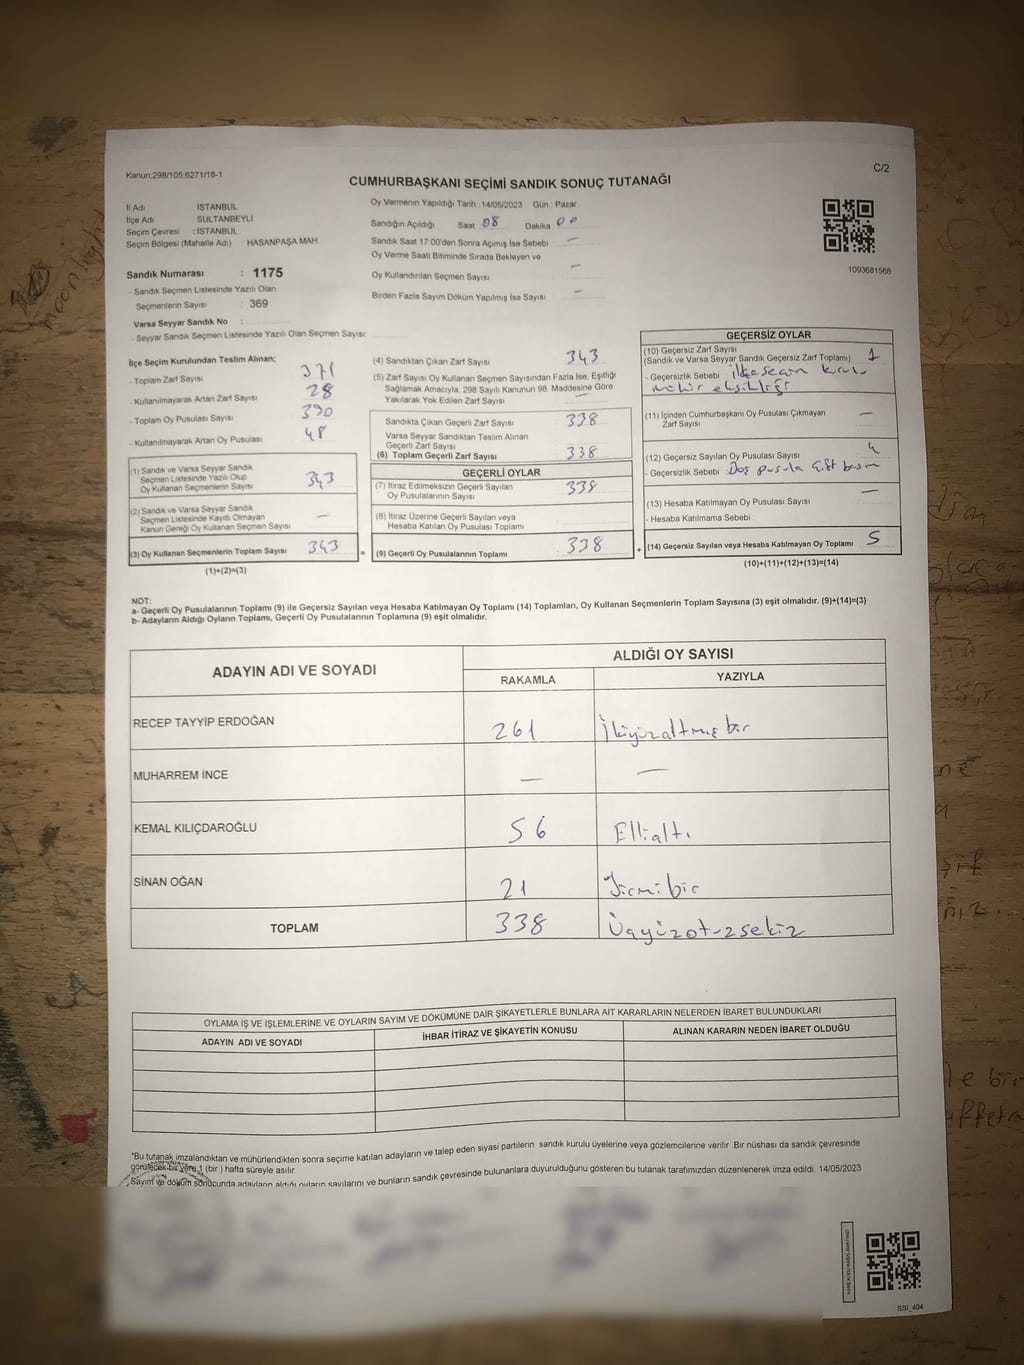 Kanun;298/105;6271/18-1
C/2
CUMHURBAŞKANI SEÇİMİ SANDIK SONUÇ TUTANAĞI
İl Adı İSTANBUL
İlçe Adı : SULTANBEYLİ
Seçim Çevresi : İSTANBUL
Seçim Bölgesi (Mahalle Adı) HASANPAŞA MAH.
Sandık Numarası : 1175
- Sandık Seçmen Listesinde Yazılı Olan
Seçmenlerin Sayısı : 369
Varsa Seyyar Sandık No :
- Seyyar Sandık Seçmen Listesinde Yazılı Olan Seçmen Sayısı:
Oy Vermenin Yapıldığı Tarih : 14/05/2023 Gün : Pazar
Sandığın Açıldığı Saat 08 Dakika 00
Sandık Saat 17:00'den Sonra Açımış İse Sebebi —
Oy Verme Saati Bitiminde Sırada Bekleyen ve
Oy Kullandırılan Seçmen Sayısı —
Birden Fazla Sayım Döküm Yapılmış İse Sayısı —
1093681568
İlçe Seçim Kurulundan Teslim Alınan;
- Toplam Zarf Sayısı 371
- Kullanılmayarak Artan Zarf Sayısı 28
- Toplam Oy Pusulası Sayısı 390
- Kullanılmayarak Artan Oy Pusulası 48
(1) Sandık ve Varsa Seyyar Sandık
Seçmen Listesinde Yazılı Olup
Oy Kullanan Seçmenlerin Sayısı 343
(2) Sandık ve Varsa Seyyar Sandık
Seçmen Listesinde Kayıtlı Olmayan
Kanun Gereği Oy Kullanan Seçmen Sayısı —
(3) Oy Kullanan Seçmenlerin Toplam Sayısı 343 =
(1)+(2)=(3)
(4) Sandıktan Çıkan Zarf Sayısı 343
(5) Zarf Sayısı Oy Kullanan Seçmen Sayısından Fazla İse, Eşitliği
Sağlamak Amacıyla, 298 Sayılı Kanunun 98. Maddesine Göre
Yakılarak Yok Edilen Zarf Sayısı —
Sandıkta Çıkan Geçerli Zarf Sayısı 338
Varsa Seyyar Sandıktan Teslim Alınan
Geçerli Zarf Sayısı
(6) Toplam Geçerli Zarf Sayısı 338
GEÇERLİ OYLAR
(7) İtiraz Edilmeksizin Geçerli Sayılan
Oy Pusulalarının Sayısı 338
(8) İtiraz Üzerine Geçerli Sayılan veya
Hesaba Katılan Oy Pusulası Toplamı
(9) Geçerli Oy Pusulalarının Toplamı 338 +
GEÇERSİZ OYLAR
(10) Geçersiz Zarf Sayısı
(Sandık ve Varsa Seyyar Sandık Geçersiz Zarf Toplamı) 1
- Geçersizlik Sebebi ilçe seçim kurul
mühür eksikliği
(11) İçinden Cumhurbaşkanı Oy Pusulası Çıkmayan
Zarf Sayısı —
(12) Geçersiz Sayılan Oy Pusulası Sayısı 4
- Geçersizlik Sebebi Boş pusula çift basım
(13) Hesaba Katılmayan Oy Pusulası Sayısı —
- Hesaba Katılmama Sebebi
(14) Geçersiz Sayılan veya Hesaba Katılmayan Oy Toplamı 5
(10)+(11)+(12)+(13)=(14)
NOT:
a- Geçerli Oy Pusulalarının Toplamı (9) ile Geçersiz Sayılan veya Hesaba Katılmayan Oy Toplamı (14) Toplamları, Oy Kullanan Seçmenlerin Toplam Sayısına (3) eşit olmalıdır. (9)+(14)=(3)
b- Adayların Aldığı Oyların Toplamı, Geçerli Oy Pusulalarının Toplamına (9) eşit olmalıdır.
ADAYIN ADI VE SOYADI
ALDIĞI OY SAYISI
RAKAMLA YAZIYLA
RECEP TAYYİP ERDOĞAN 261 İkiyüzaltmış bir
MUHARREM İNCE — —
KEMAL KILIÇDAROĞLU 56 Ellialtı
SİNAN OĞAN 21 Yirmibir
TOPLAM 338 Üçyüzotuzsekiz
OYLAMA İŞ VE İŞLEMLERİNE VE OYLARIN SAYIM VE DÖKÜMÜNE DAİR ŞİKAYETLERLE BUNLARA AİT KARARLARIN NELERDEN İBARET BULUNDUKLARI
ADAYIN ADI VE SOYADI İHBAR İTİRAZ VE ŞİKAYETİN KONUSU ALINAN KARARIN NEDEN İBARET OLDUĞU
*Bu tutanak imzalandıktan ve mühürlendikten sonra seçime katılan adayların ve talep eden siyasi partilerin sandık kurulu üyelerine veya gözlemcilerine verilir. Bir nüshası da sandık çevresinde
görülecek bir yere 1 (bir ) hafta süreyle asılır.
Sayım ve döküm sonucunda adayların aldığı oyların sayılarını ve bunların sandık çevresinde bulunanlara duyurulduğunu gösteren bu tutanak tarafımızdan düzenlenerek imza edildi. 14/05/2023
SSI_404
moonlight